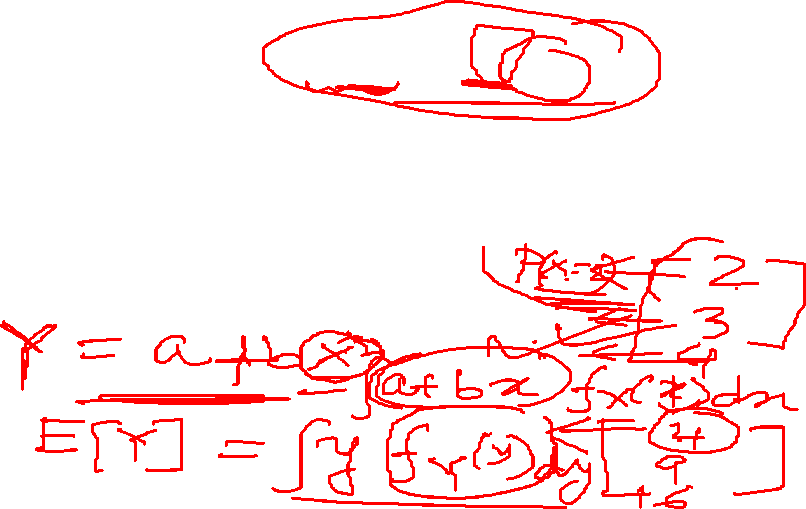 P(X=2) = 2
3
4
Y = a + bX
∫ a + bx fx(x) dx
E[Y] = ∫ y fY(y) dy
4
9
16